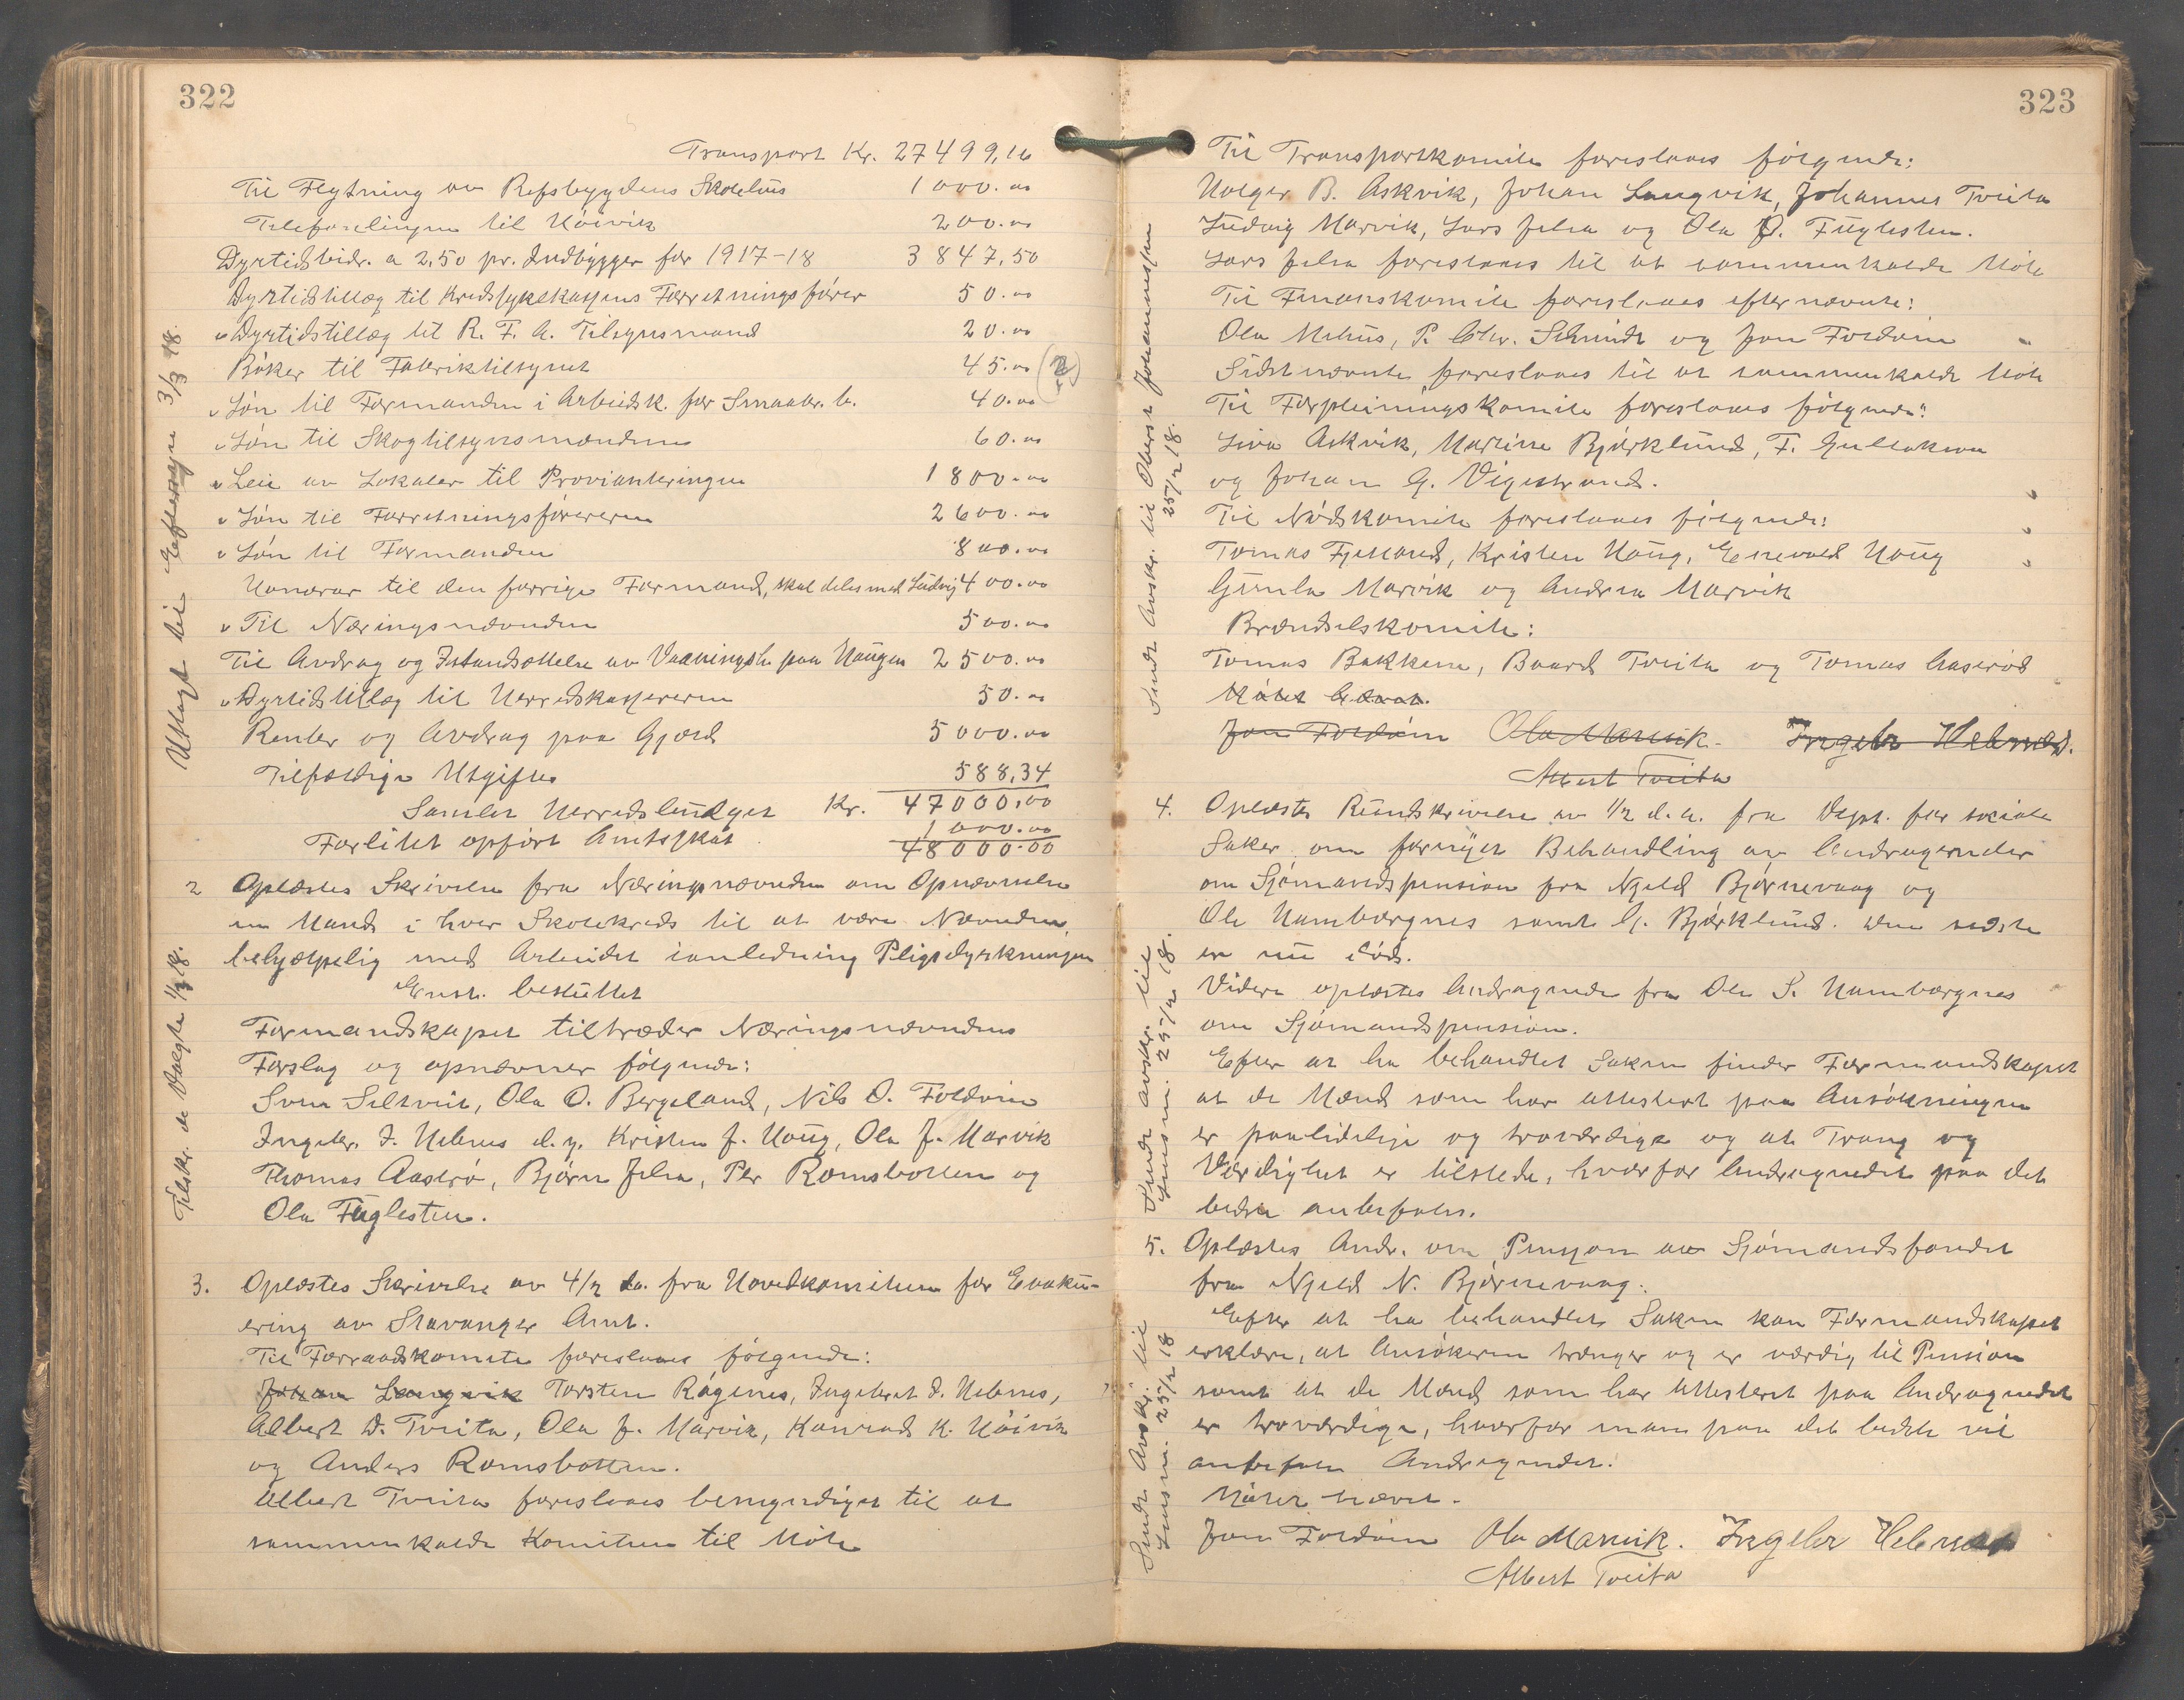 322
Transport Kr. 27499,16
Til Flytning av Refsbygdens Skolehus 1000.00
Telefonlinjen til Höivik 200.00
Dyrtidsbidr. a 2,50 pr. Indbygger for 1917-18 3847,50
Dyrtidstillæg til Kredssykekassens Forretningsfører 50.00
" Dyrtidstillæg til R. F. A. Tilsynsmand 20.00
Böker til Fabriktilsynet 45.00 (2)
" Lön til Formanden i Arbeidsk. for Smaabr. b. 40.00
" Lön til Skogtilsynsmændene 60.00
" Leie av Lokaler til Provianteringen 1800.00
" Lön til Forretningsföreren 2600.00
" Lön til Formanden 800.00
Honorar til den forrige Formand, skal deles med Ludvig 400.00
" Til Næringsnævnden 500.00
Til Avdrag og Istandsættelse av Vaaningsh. paa Haugen 2500.00
" Dyrtidstillæg til Herredskassereren 50.00
Renter og Avdrag paa Gjæld 5000.00
Tilfældige Utgifter 588,34
Samlet Herredsbudget Kr. 47000,00
Forlitet opfört Amtsskat 1000.00
48000.00
2 Oplæstes Skrivelse fra Næringsnævnden om Opnævnelse
en Mand i hver Skolekreds til at være Nævnden
behjælpelig med Arbeidet ianledning Pligtdyrkningen
Enst. besluttet
Formandskapet tiltræder Næringsnævndens
Forslag og opnævner fölgende:
Sven Seltveit, Ola O. Bergeland, Nils O. Foldöin
Ingebr. I. Hebnes d. y. Kristen J. Haug, Ola J. Marvik
Thomas Aaserö, Björn Jelsa, Per Ramsbotten og
Ola Fuglesten.
3. Oplæstes Skrivelse av 4/2 da. fra Hovedkomiteen for Evaku-
ering av Stavanger Amt.
Til Forraadskomite foreslaaes fölgende:
Johan Langvik Torsten Rögenes, Ingebret I. Hebnes,
Albert D. Tveita, Ola J. Marvik, Konrad K. Höivik
og Anders Ramsbotten.
Albert Tveita foreslaaes bemyndiget til at
sammenkalde Komiteen til Möte
Utlagt til Eftersyn 3/3 18.
Tilskr. de Valgte 1/3 18.
323
Til Transportkomite foreslaaes fölgende:
Holger B. Askvik, Johan Langvik, Johannes Tveita
Ludvig Marvik, Lars Jelsa og Ola O. Fuglesten.
Lars Jelsa foreslaaes til at sammenkalde Möte
Til Finanskomite foreslaaes efternævnte:
Ola Mehus, P. Chr. Schmidt og Jon Foldöin "
Sidstnævnte foreslaaes til at sammenkalde Möte
Til Forpleiningskomite foreslaaes fölgende:
Liva Askvik, Marine Björklund, F. Gullaksen
og Johan G. Vigestrand.
Til Nödskomite foreslaaes fölgende:
Tomas Fjetland, Kristen Haug, Enevald Haug
Gunla Marvik og Andrea Marvik
Brændselskomite:
Tomas Bakken, Baard Tveita og Tomas Aaseröd
Mötet hævet.
Jon Foldöin Ola Marvik. Ingebr Hebnes.
Albert Tveita
4. Oplæstes Rundskrivelse av 1/2 d. a. fra Dept. for sociale
Saker om fornyet Behandling av Andragender
om Sjömandspension fra Njeld Björnevaag og
Ole Hambærgnes samt G. Björklund. Den sidste
er nu död.
Videre oplæstes Andragende fra Ole S. Hambærgnes
om Sjömandspension.
Efter at ha behandlet Saken finder Formandskapet
at de Mænd som har attestert paa Ansökningen
er paalidelige og troværdige og at Trang og
Værdighet er tilstede, hvorfor Andragendet paa det
bedste anbefales.
5. Oplæstes Andr. om Pension av Sjömandsfondet
fra Njeld N. Björnevaag.
Efter at ha behandlet Saken kan Formandskapet
erklære, at Ansökeren trænger og er værdig til Pension
samt at de Mænd som har attesteret paa Andragendet
er troværdige, hvorfor man paa det bedste vil
anbefale Andragendet.
Mötet hævet.
Jon Foldöin Ola Marvik. Ingebr Hebnes
Albert Tveita
Sendt Avskr. til Oberst Johannessen
25/2 18.
Sendt avskr. til
Lensm. 25/2 18.
Sendt Avskr. til
Lensm. 25/2 18